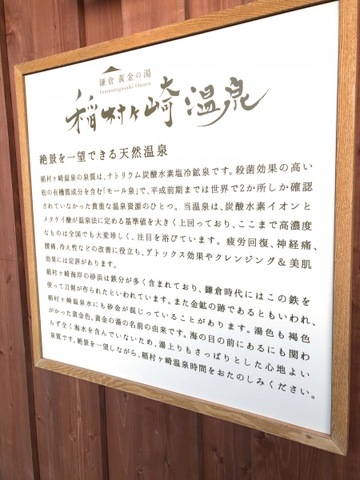 鎌倉 黄金の湯
Inamuragasaki Onsen
稲村ヶ崎温泉
絶景を一望できる天然温泉
稲村ヶ崎温泉の泉質は、ナトリウム炭酸水素塩冷鉱泉です。殺菌効果の高い
松の有機質成分を含む「モール泉」で、平成前期までは世界で2か所しか確認
されていなかった貴重な温泉資源のひとつ。当温泉は、炭酸水素イオンと
メタケイ酸が温泉法に定める基準値を大きく上回っており、ここまで高濃度
なものは全国でも大変珍しく、注目を浴びています。疲労回復、神経痛、
腰痛、冷え性などの改善に役立ち、デトックス効果やクレンジング&美肌
効果には定評があります。
稲村ヶ崎海岸の砂浜は鉄分が多く含まれており、鎌倉時代にはこの鉄を
使って刀剣が作られたといわれています。また金鉱の跡であるともいわれ、
稲村ヶ崎温泉水にも砂金が混じっていることがあります。湯色も褐色
がかった黄金色。黄金の湯の名前の由来です。海の目の前にあるにも関わ
らず全く海水を含んでいないため、湯上りもさっぱりとした心地よい
泉質です。絶景を一望しながら、稲村ヶ崎温泉時間をおたのしみください。